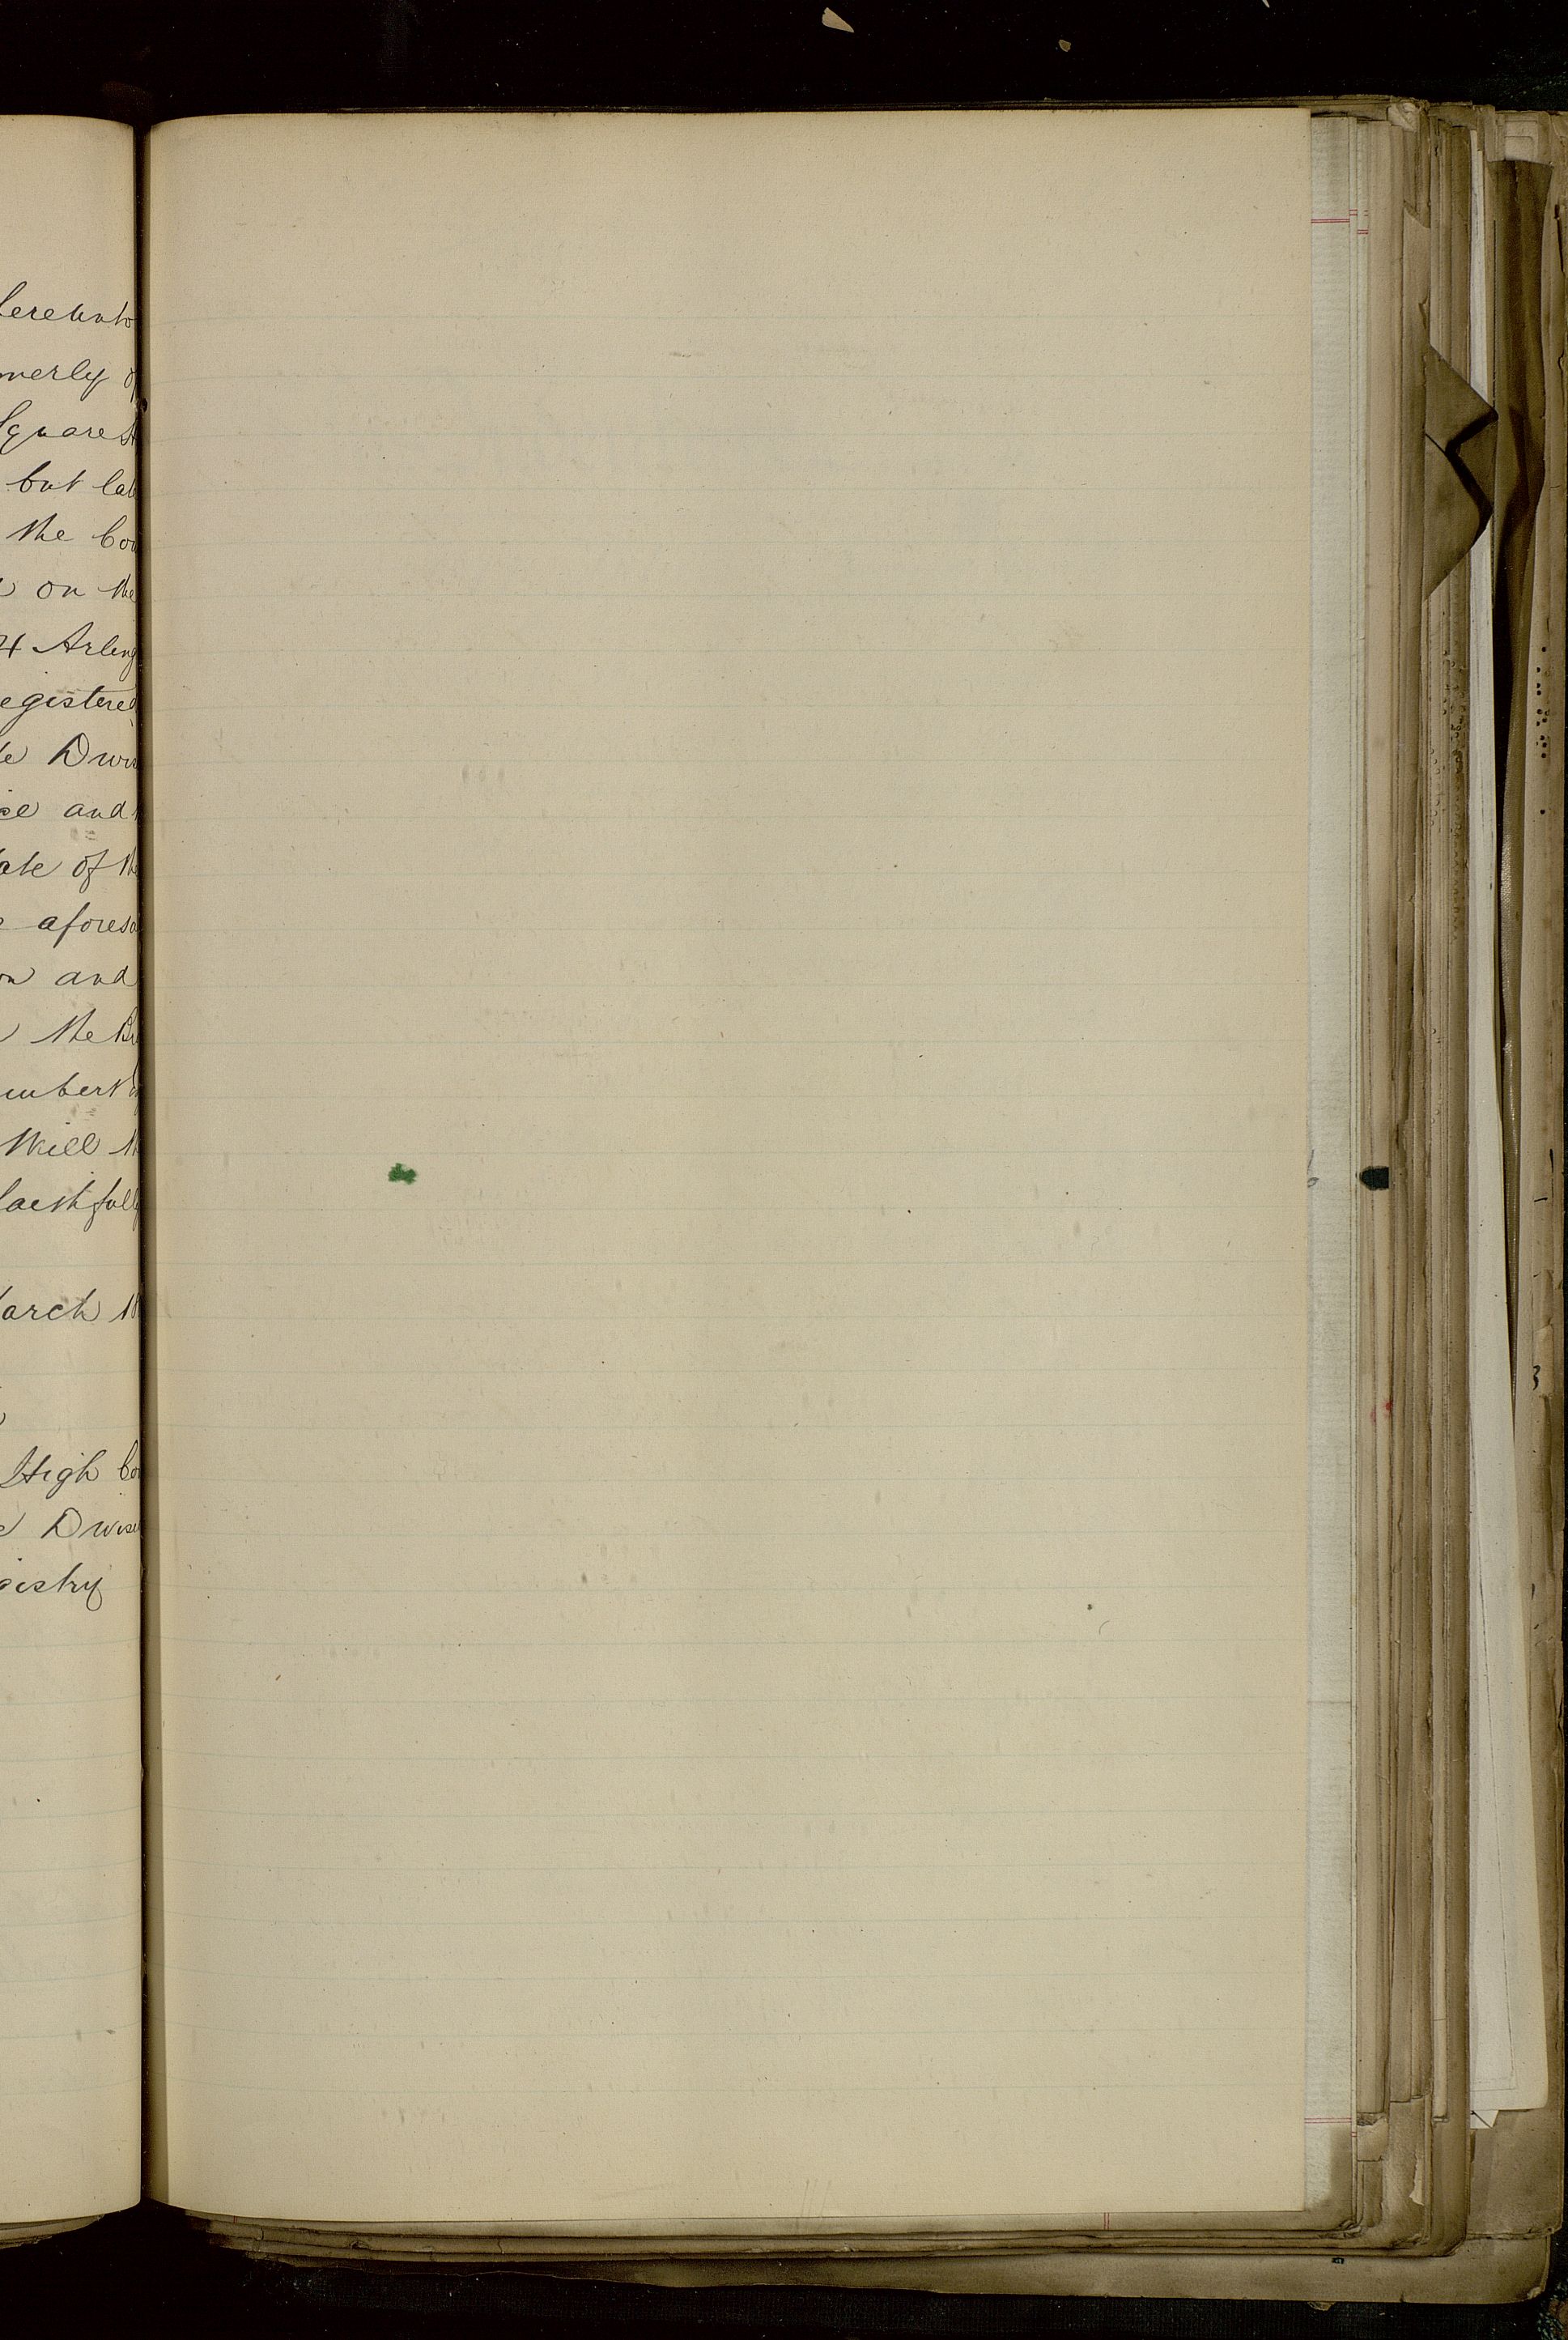 hereunto
merly of
Square
but lat
the Cou
on the
4 Arling
egistered
te Divis
ce and
ate of th
aforesa
on and
the
umbert
Will
faithfull
arch 18
High Co
Divis
gistry